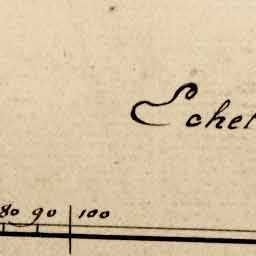 Echel
80 90 100